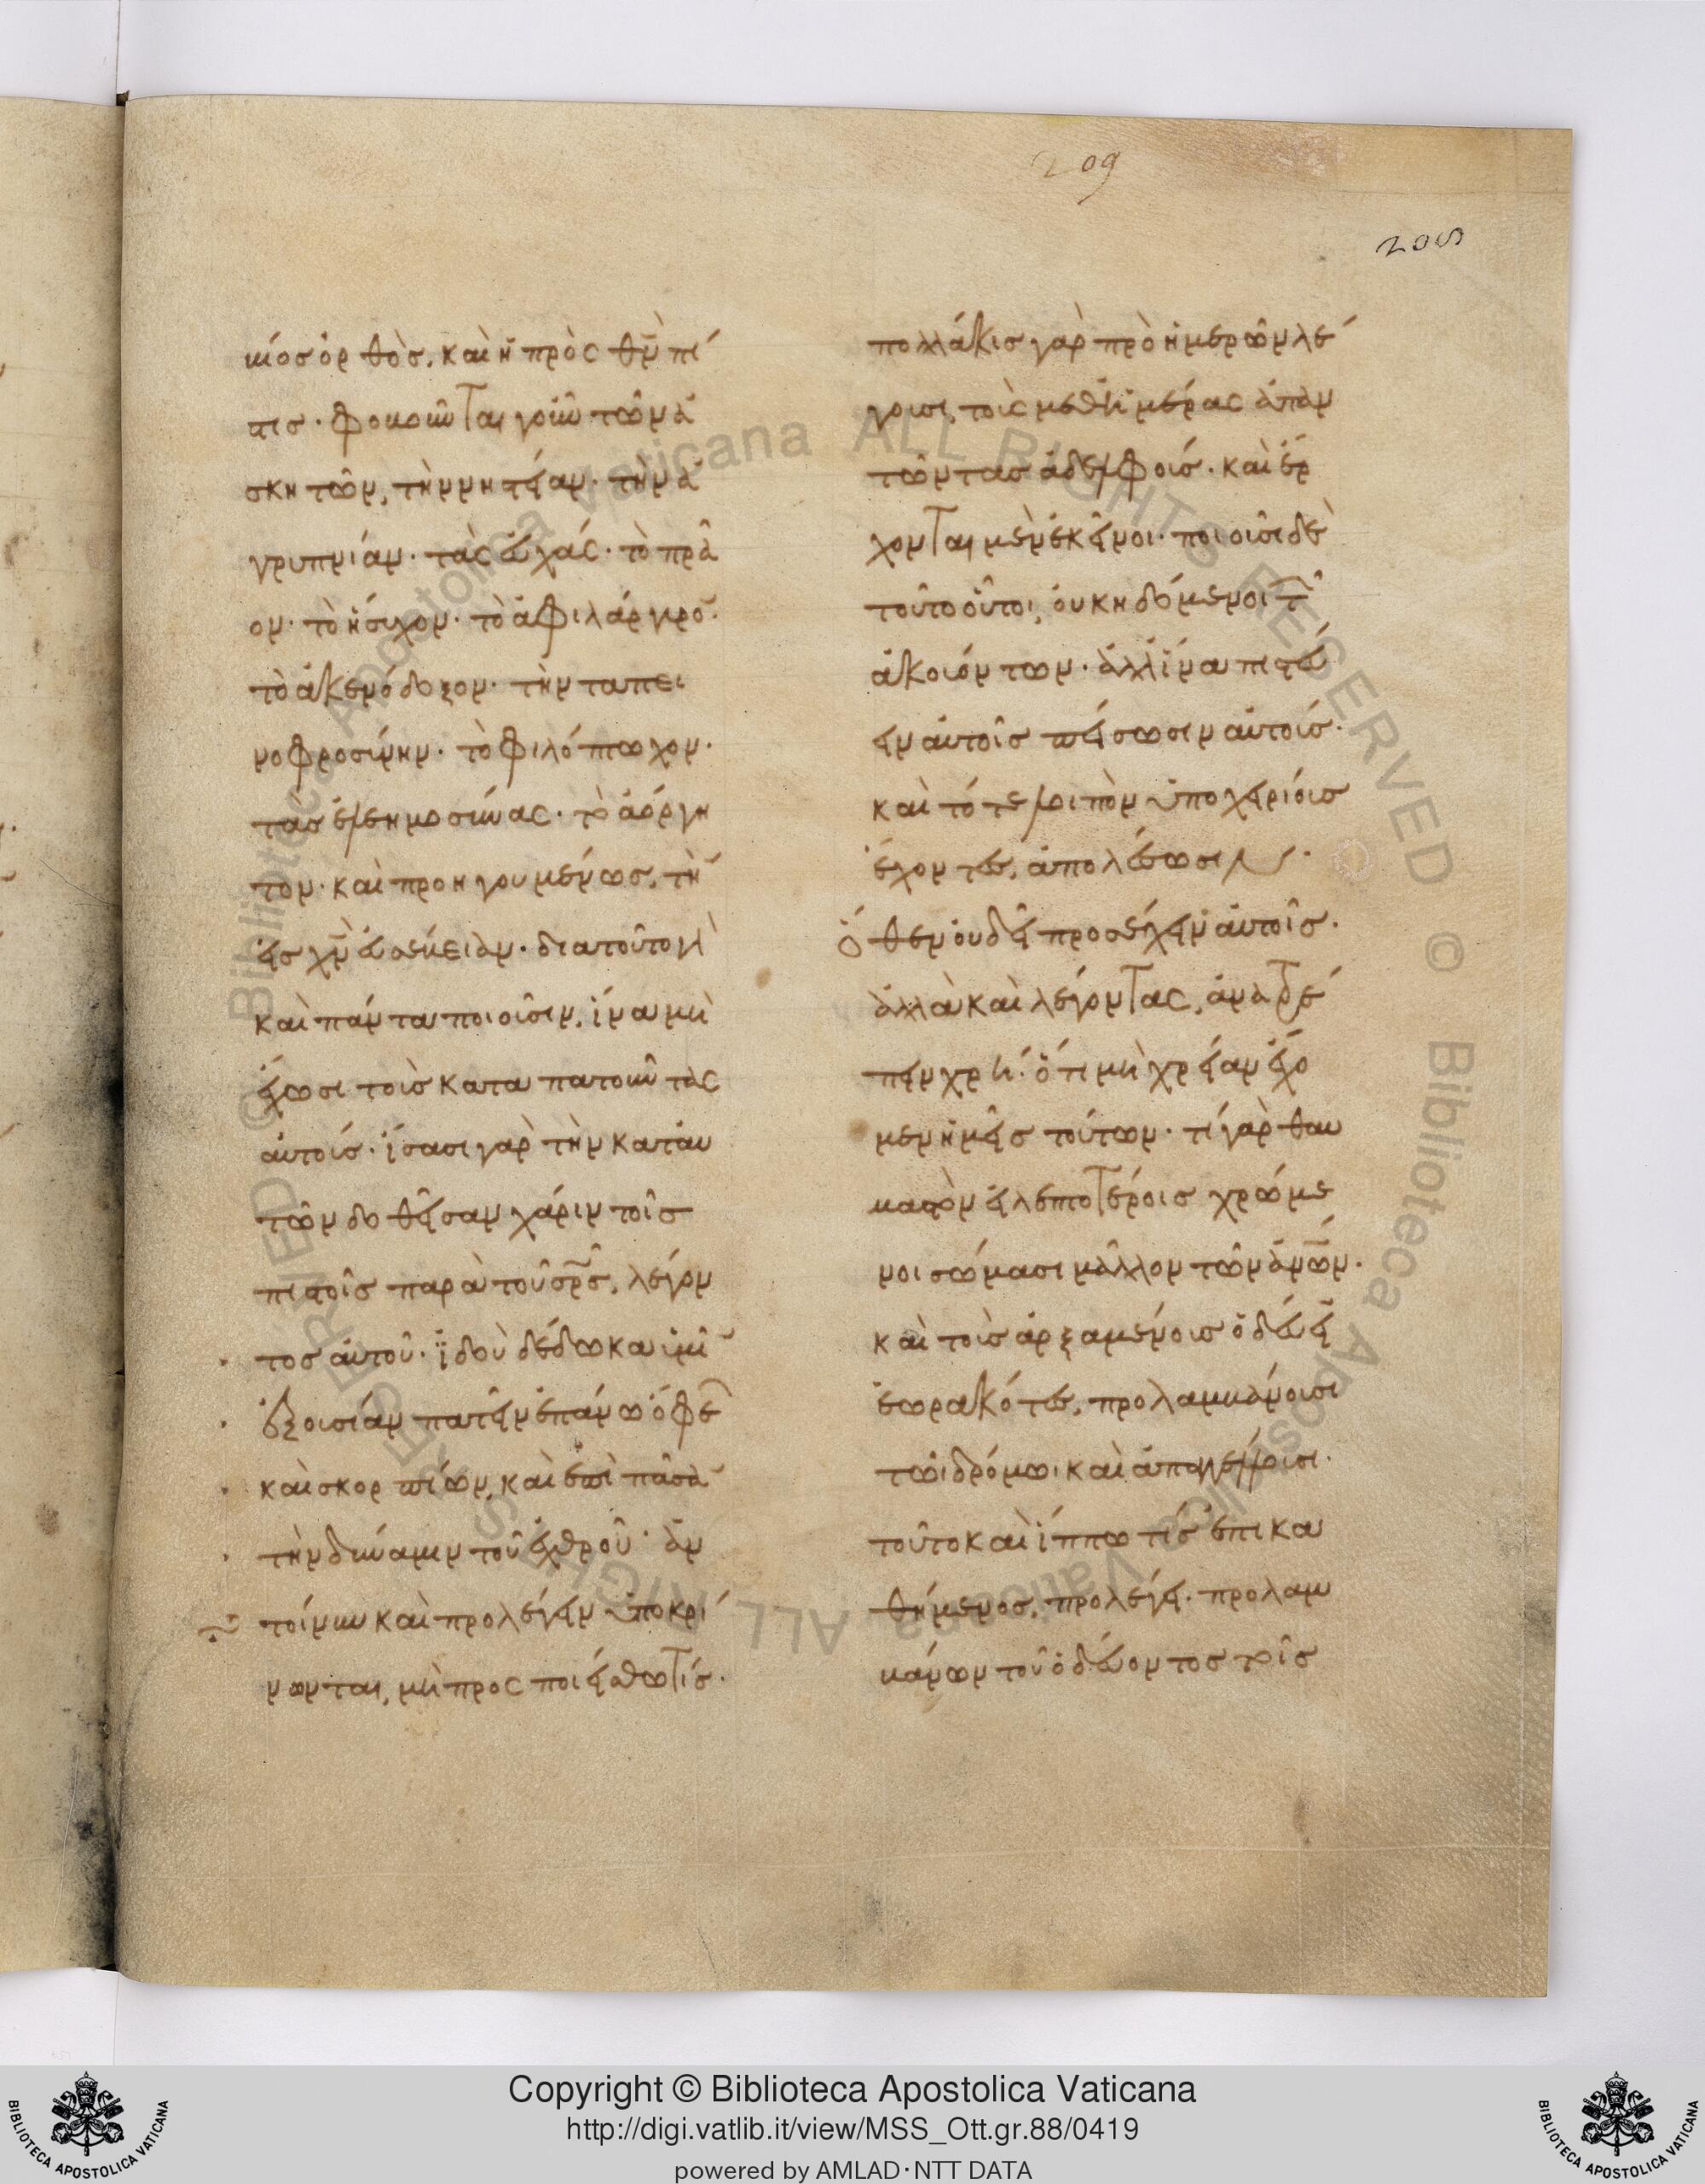 209
205
βίος ὀρθὸς, καὶ ἡ πρὸς θν πί
στις· φοβοῦνται γοῦν τῶν ἀ
σκητῶν, τὴν νηστείαν· τὴν ἀ
γρυπνίαν· τὰς εὐχάς· τὸ πρᾶ
ον· τὸ ἥσυχον· τὸ ἀφιλάργυρο̄·
τὸ ἀκενόδοξον· τὴν ταπει
νοφροσύνην· τὸ φιλόπτωχον·
τὰς ἐλεημοσύνας· τὸ ἀόργη
τον· καὶ προηγουμένως, τὴ̄
εἰς χν εὐσέβειαν· διατοῦτο γὰ
καὶ πάντα ποιοῦσιν, ἵνα μὴ
ἔχωσι τοὺς καταπατοῦντας
αὐτούς· ἴσασι γὰρ τὴν κατ' αὐ
τῶν δοθεῖσαν χάριν τοῖς
πιστοῖς παρὰ τοῦ σρς, λέγον
τος αὐτοῦ· ἰδοὺ δέδωκα ὑμῖ̄
ἐξουσίαν πατεῖν ἐπάνω ὄφε
καὶ σκορπίων, καὶ ἐπὶ πᾶσᾱ
τὴν δύναμιν τοῦ ἐχθροῦ· ἂν
τοίνυν καὶ προλέγειν ὑποκρί
νωνται, μὴ προσποιείσθω τίς·
πολλάκις γὰρ πρὸ ἡμερῶν λέ
γουσι, τοὺς μεθ' ἡμέρας ἀπαν
τῶντας ἀδελφούς· καὶ ἔρ
χονται μὲν ἐκεῖνοι· ποιοῦσι δὲ
τοῦτο οὗτοι, οὐ κηδόμενοι τ
ἀκουόντων· ἀλλ' ἵνα πιστεύ
ειν αὐτοῖς πείσωσιν αὐτούς·
καὶ τότε λοιπὸν ὑποχειρίους
ἔχοντες, ἀπολέσωσιν·
ὅθεν οὐ δεῖ προσέχειν αὐτοῖς·
ἀλλὰ καὶ λέγοντας, ἀνατρέ
πειν χρή· ὅτι μὴ χρείαν ἔχο
μεν ἡμεῖς τούτων· τί γὰρ θαυ
μαστὸν εἰ λεπτοτέροις χρώμε
νοι σώμασι μᾶλλον τῶν ἀνων·
καὶ τοὺς ἀρξαμένους ὁδεύει
ἑωρακότες, προλαμβάνουσι
τῶι δρόμωι καὶ ἀπαγγέλλουσι·
τοῦτο καὶ ἵππω τίς ἐπικα
θήμενος, προλέγει· προλαμ
βάνων τοῦ ὁδεύοντος τοῖς
Copyright © Biblioteca Apostolica Vaticana
http://digi.vatlib.it/view/MSS_Ott.gr.88/0419
powered by AMLAD·NTT DATA